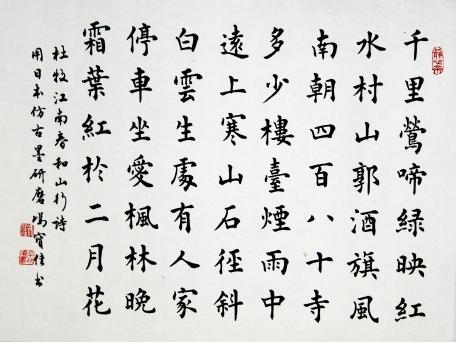 千里鶯啼綠映紅
水村山郭酒旗風
南朝四百八十寺
多少樓臺煙雨中
遠上寒山石徑斜
白雲生處有人家
停車坐愛楓林晚
霜葉紅於二月花
杜牧江南春和山行詩
用日本仿古墨研磨馮寶佳書